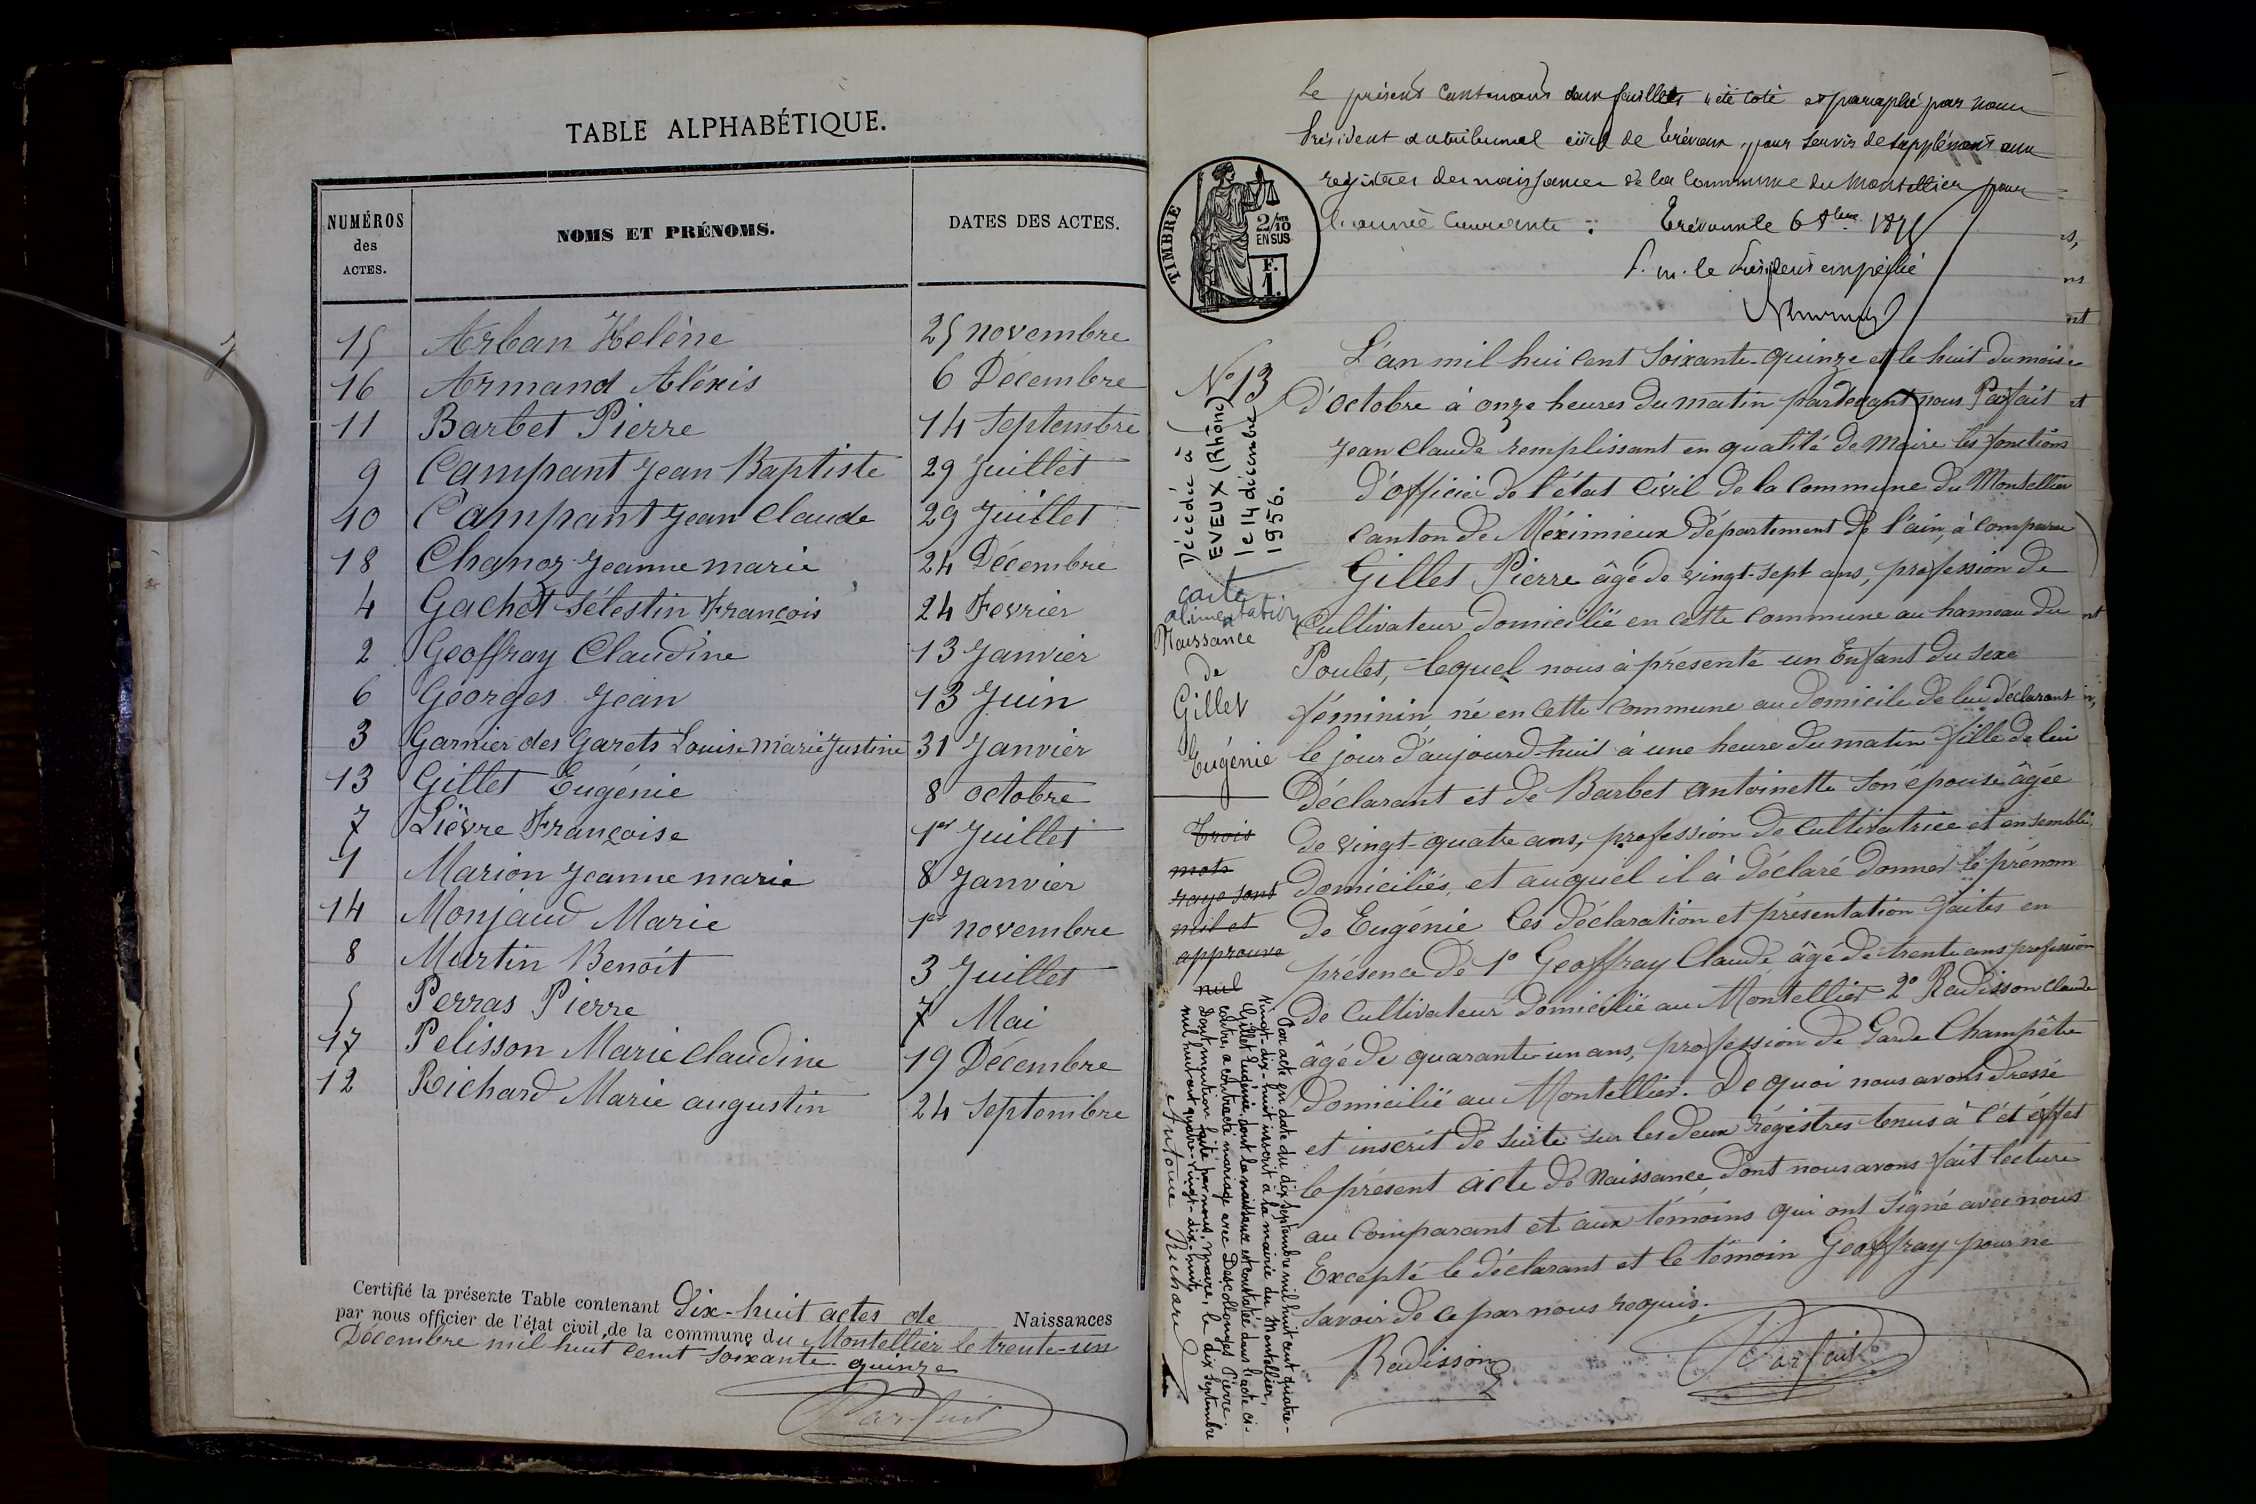 TABLE ALPHABÉTIQUE.
NUMÉROS des ACTES. NOMS ET PRÉNOMS. DATES DES ACTES.
15 Arban Helène 25 novembre
16 Armand Alexis 6 Décembre
11 Barbet Pierre 14 Septembre
9 Campant Jean Baptiste 29 Juillet
10 Campant Jean Claude 29 Juillet
18 Chanoz Jeanne marie 24 Décembre
4 Gachet Sélestin François 24 Fevrier
2 Geoffray Claudine 13 Janvier
6 Georges Jean 13 Juin
3 Garnier des Garets Louise Marie Justine 31 Janvier
13 Gillet Eugénie 8 octobre
7 Lièvre Françoise 1er Juillet
1 Marion Jeanne marie 8 Janvier
14 Monjaud Marie 1er novembre
8 Murtin Benoit 3 Juillet
5 Perras Pierre 7 Mai
17 Pelisson Marie Claudine 19 Décembre
12 Richard Marie augustin 24 Septembre
Certifié la présente Table contenant Dix-huit actes de Naissances
par nous officier de l'état civil de la commune du Montellier le trente-un
Décembre mil huit cent soixante quinze
Parfait
Le présent contenant deux feuillets a été coté et paraphé par nous
Président du tribunal civil de Trévoux, pour servir de supplément aux
registres des naissances de la Commune du Montellier pour
l'année courante : Trévoux le 6 8bre 1875
P. M. le Président empêché
TIMBRE
2/10 EN SUS
F. 1.
N° 13
Décédée à
EVEUX (Rhône)
le 14 décembre
1956.
carte
alimentation
Naissance
de
Gillet
Eugénie
Trois
mots
rayé sont
nul et
approuve
nul
L'an mil huit cent soixante-quinze et le huit du mois
d'octobre à onze heures du matin pardevant nous Parfait
Jean Claude remplissant en qualité de Maire les fonctions
d'officier de l'état civil de la commune du Montellier
canton de Méximieux département de l'ain, à comparu
Gillet Pierre âgé de vingt-sept ans, profession de
Cultivateur domicilié en cette commune au hameau du
Poulet, lequel nous à présenté un Enfant du sexe
féminin né en cette commune au domicile de lui déclarant
le jour d'aujourd-huit à une heure du matin fille de lui
Déclarant et de Barbet Antoinette son épouse âgée
de vingt-quatre ans, profession de cultivatrice et ensemble
domiciliés, et auquel il à déclaré donner le prénom
de Eugénie Ces déclaration et présentation faites en
présence de 1° Geoffray Claude âgé de trente ans profession
de Cultivateur domicilié au Montellier 2° Radisson Claude
âgé de quarante-un ans, profession de Garde Champêtre
domicilié au Montellier. De quoi nous avons dressé
et inscrit de suite sur les deux régistres tenus à cet éffet
le présent acte de naissance dont nous avons fait lecture
au comparant et aux témoins qui ont signé avec nous
Excepté le déclarant et le témoin Geoffray pour ne
savoir de ce par nous requis.
Radisson Parfait
Par acte en date du dix septembre mil huit cent quatre-
vingt-dix-huit inscrit à la mairie du Montellier,
Gillet Eugénie, dont la naissance est constatée dans l'acte ci-
contre, a contracté mariage avec Descollonges Pierre.
Dont mention faite par nous, maire, le dix septembre
mil huit cent quatre-vingt-dix-huit
Antoine Richard